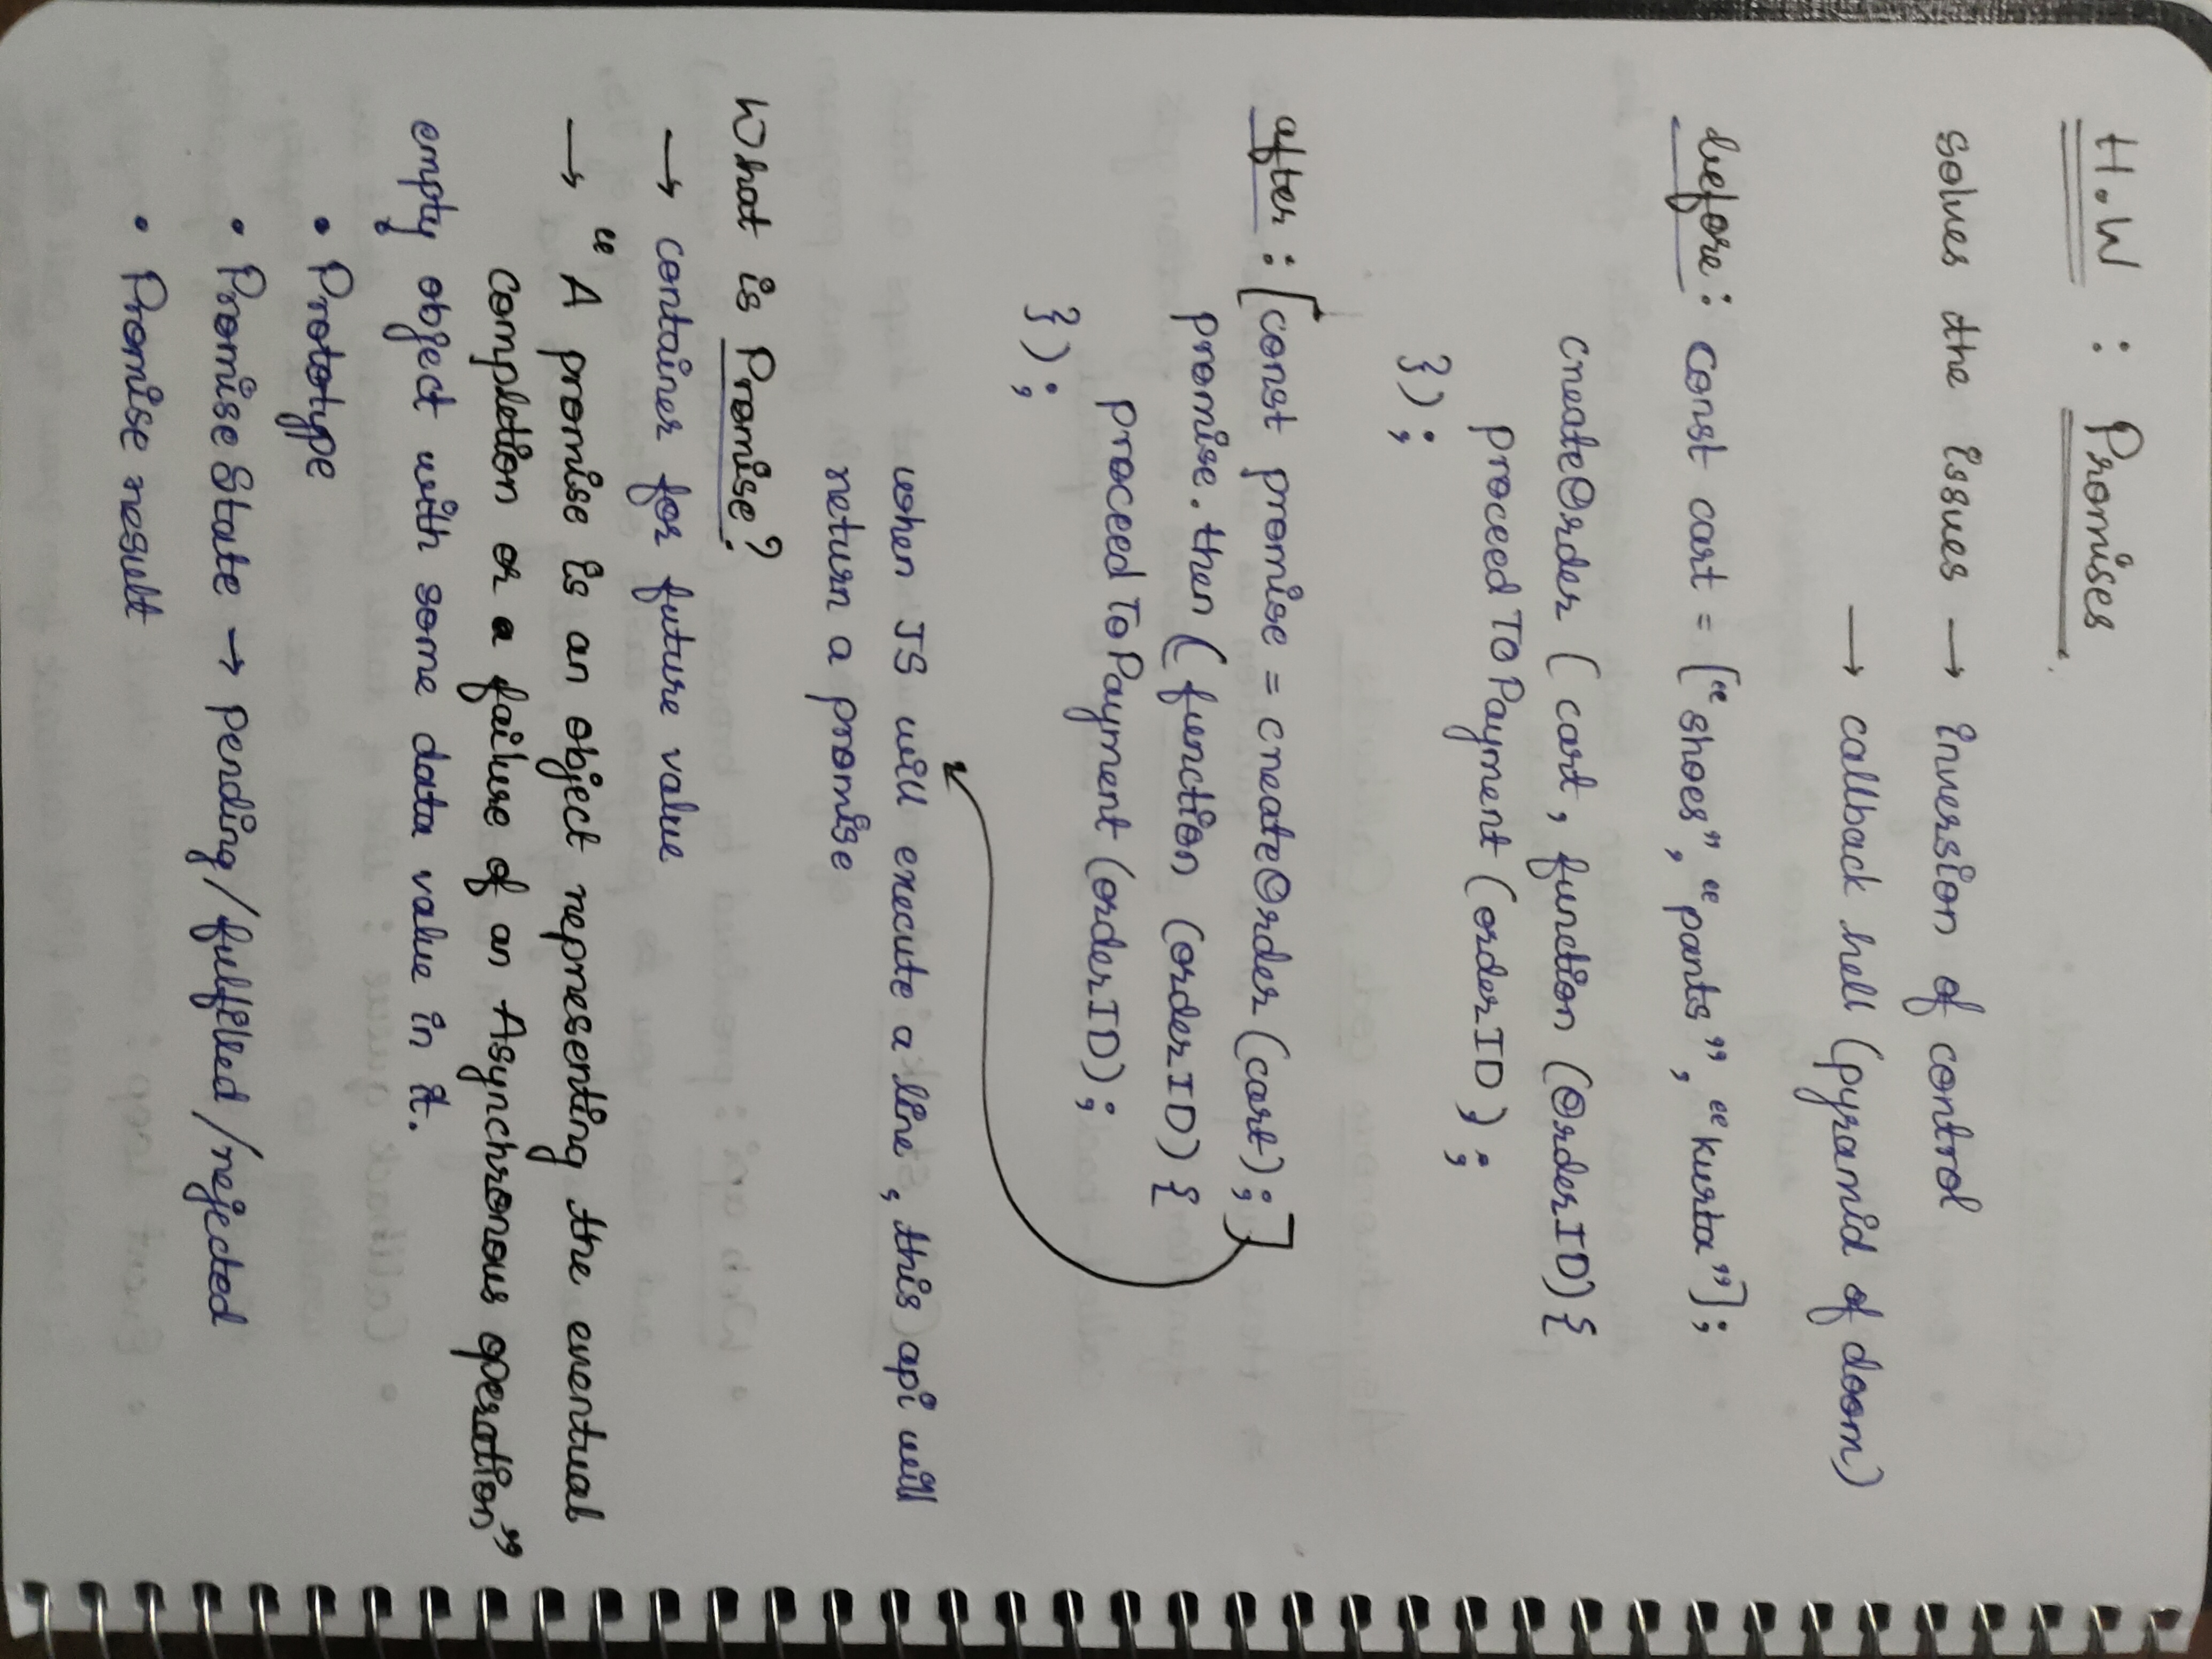 H.W : Promises
solves the issues → inversion of control
→ callback hell (pyramid of doom)
before: const cart = ["shoes", "pants", "kurta"];
createOrder ( cart, function (OrderID) {
proceed TO Payment (orderID) ;
});
after: [const promise = createOrder (cart);]
promise.then ( function (orderID) {
proceed To Payment (orderID);
});
when JS will execute a line, this api will
return a promise
What is Promise?
→ container for future value
→ "A promise is an object representing the eventual
completion or a failure of an Asynchronous operation"
empty object with some data value in it.
• Prototype
• Promise State → pending/fulfilled/rejected
• Promise result